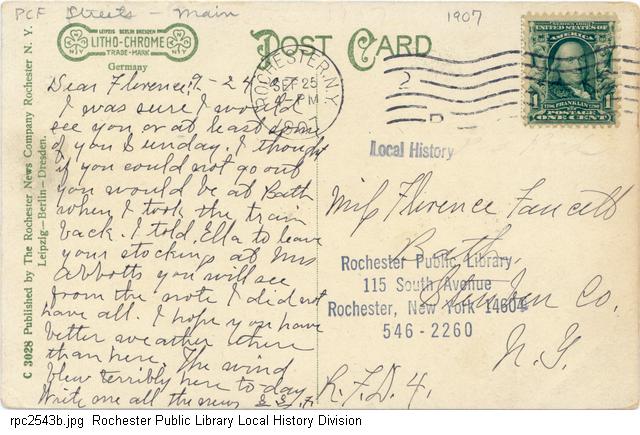 PCF Streets - Main
1907
LEIPZIG BERLIN DRESDEN
LITHO-CHROME
TRADE-MARK
N Y
N Y
Germany
POST CARD
ROCHESTER, N.Y.
SEP 25
PM
1907
UNITED STATES OF AMERICA
FRANKLIN
POSTAGE
ONE CENT
1
1
Local History
Dear Florence: 9-24
I was sure I would
see you or at least some
of you Sunday. I thought
if you could not go out
you would be at Bath
when I took the train
back. I told Ella to leave
your stockings at Mrs
Abbotts you will see
from the note I did not
have all. I hope you have
better weather there
than here. The wind
blew terribly here to-day.
Write me all the news
Miss Florence Faucett
Bath,
Steuben Co.
N.Y.
R.F.D. 4.
Rochester Public Library
115 South Avenue
Rochester, New York 14604
546-2260
C 3028 Published by The Rochester News Company Rochester N. Y.
Leipzig—Berlin—Dresden.
rpc2543b.jpg Rochester Public Library Local History Division